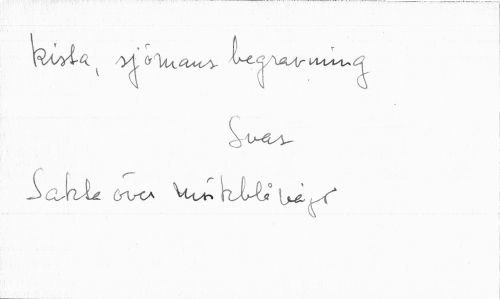 kista, sjömans begravning
Svar
Sakta över mörkblå vågor